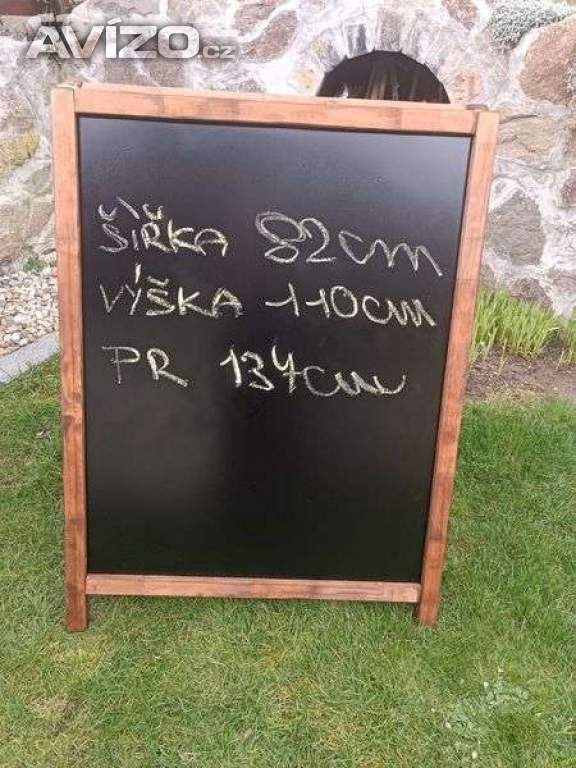 AVÍZO.cz
ŠÍŘKA 82cm
VÝŠKA 110cm
PR 134cm